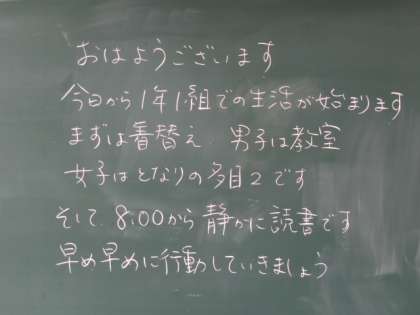 おはようございます
今日から1年1組での生活が始まります
まずは着替え 男子は教室
女子はとなりの多目2です
そして 8:00から静かに読書です
早め早めに行動していきましょう